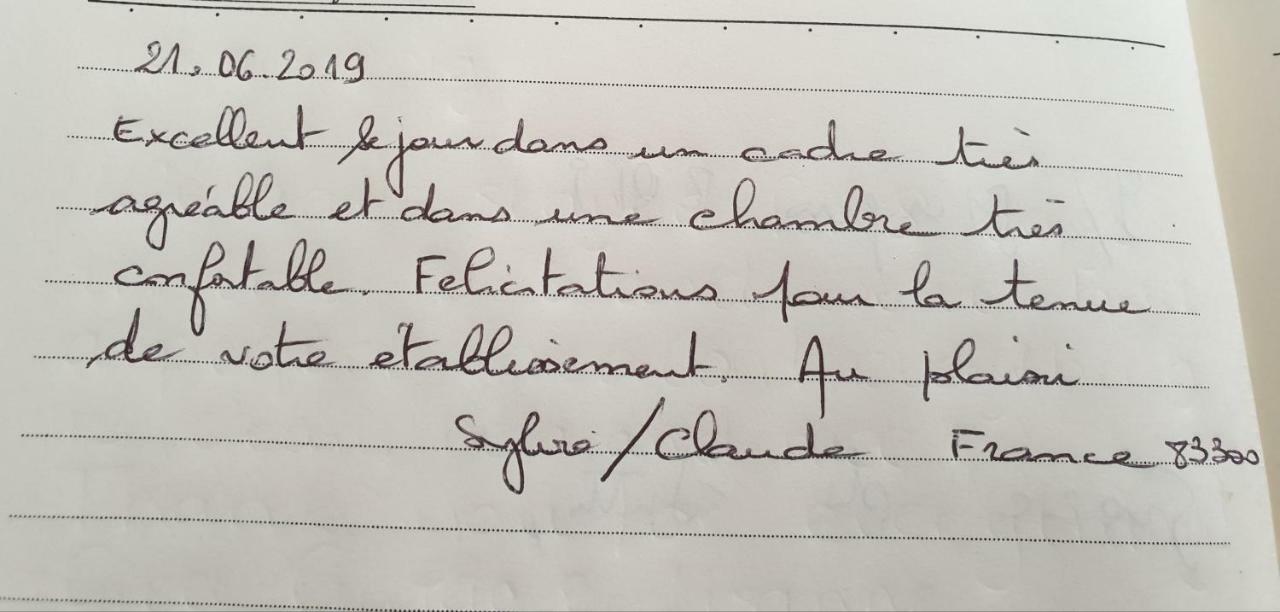 21.06.2019
Excellent séjour dans un cadre très
agréable et dans une chambre très
confortable. Felicitations pour la tenue
de votre établissement. Au plaisir
Sylvie/Claude France 83300